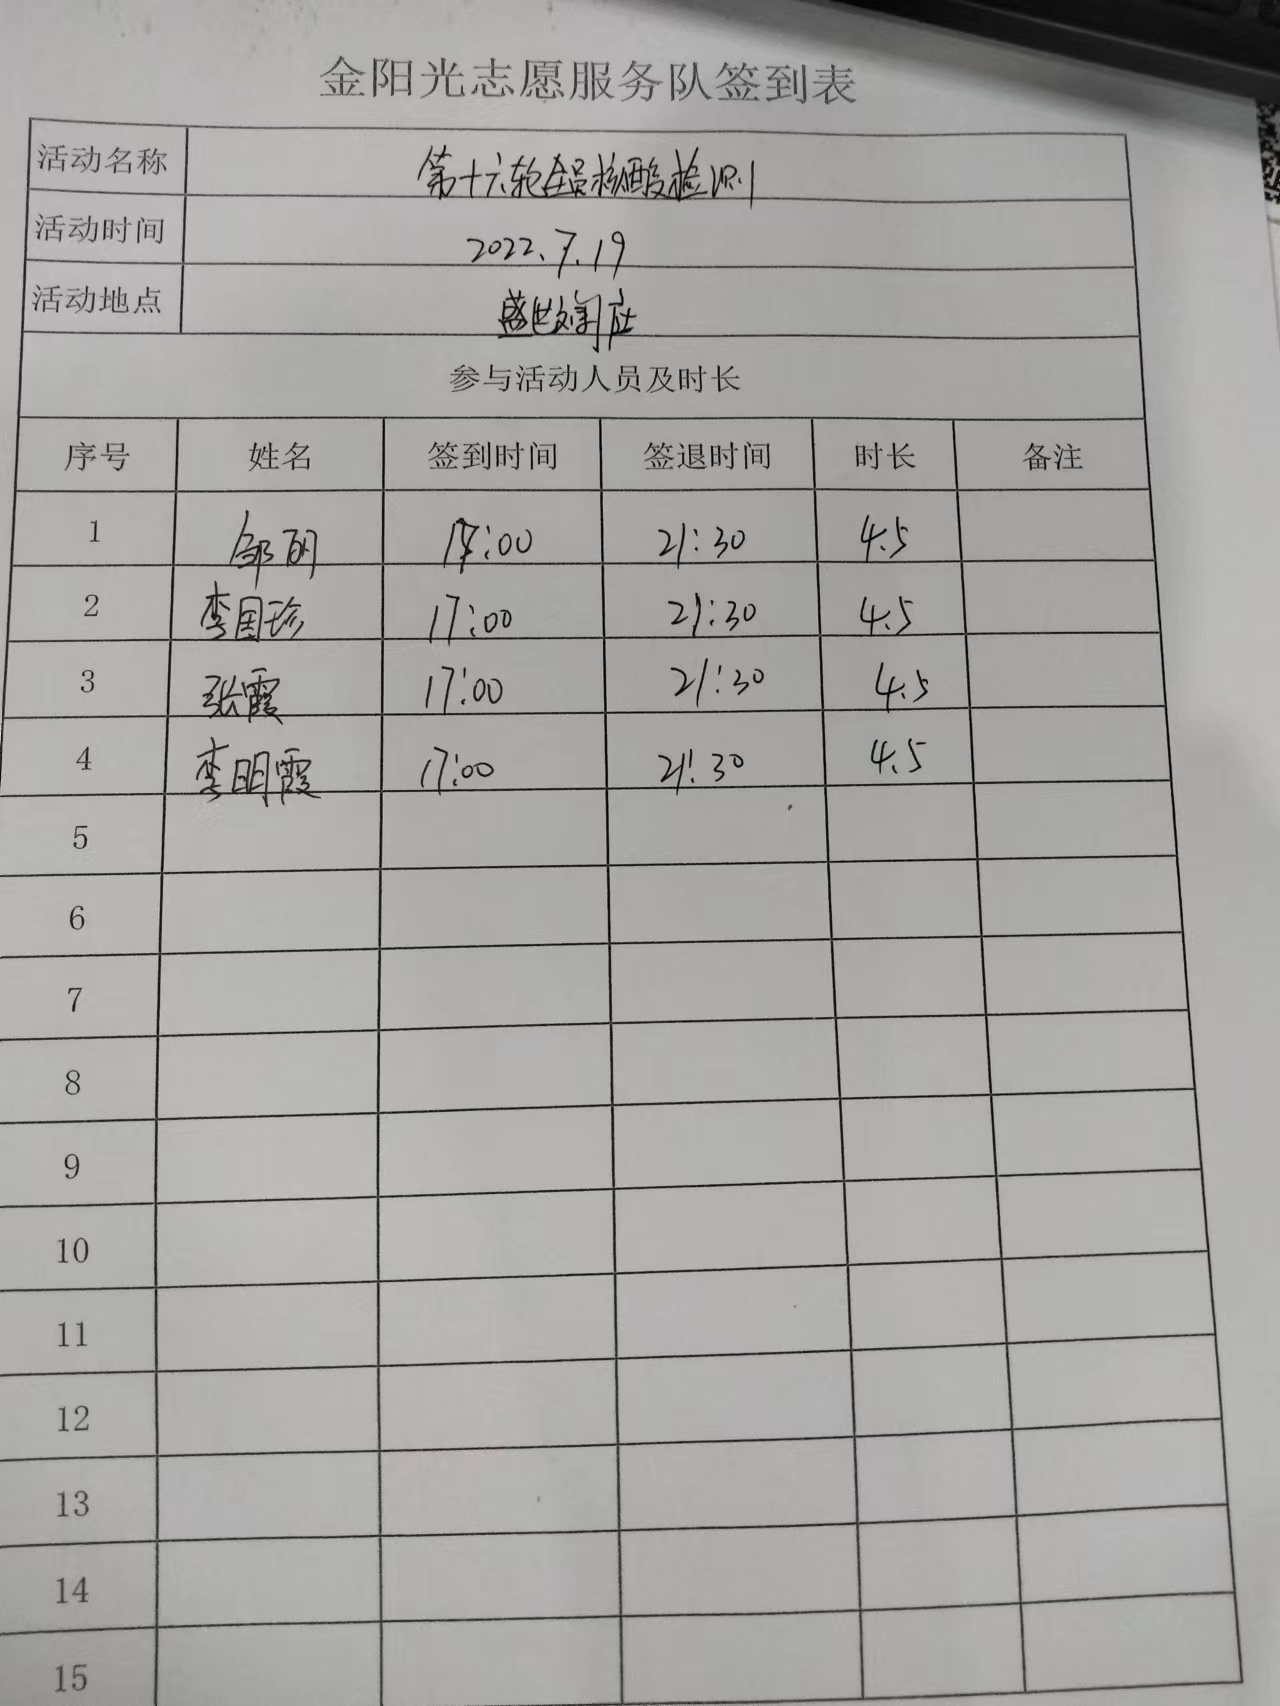 金阳光志愿服务队签到表
活动名称 第十六轮全员核酸检测
活动时间 2022.7.19
活动地点 盛世
参与活动人员及时长
序号 姓名 签到时间 签退时间 时长 备注
1 邹丽 17:00 21:30 4.5
2 李国珍 17:00 21:30 4.5
3 张霞 17:00 21:30 4.5
4 李明霞 17:00 21:30 4.5
5
6
7
8
9
10
11
12
13
14
15